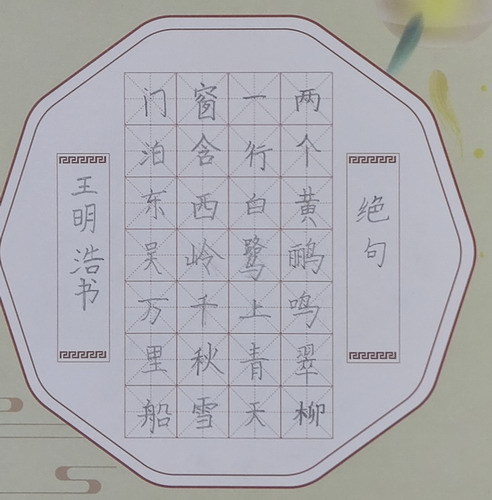 绝句
两个黄鹂鸣翠柳
一行白鹭上青天
窗含西岭千秋雪
门泊东吴万里船
王明浩书